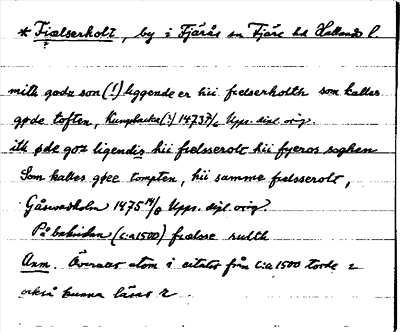 * Fiælserholt, by i Fjärås sn Fjäre hd Hallands l.
mith godz som (!) liggende er hii fielserholth som kalles
gøde toften, Kungsbacka (!) 1473 7/6 Upps. dipl. orig.
ith øde goz ligendis hii fiælsserolt hii fyeros soghen
Som kales gøee tompten, hii samme fiælsserolt,
Gåsevadholm 1475 14/8 Upps. dipl. orig.
På baksidan (c:a 1500) fiælsse rulth
Anm. Överens utom i citatet från c:a 1500 torde z
också kunna läsas r